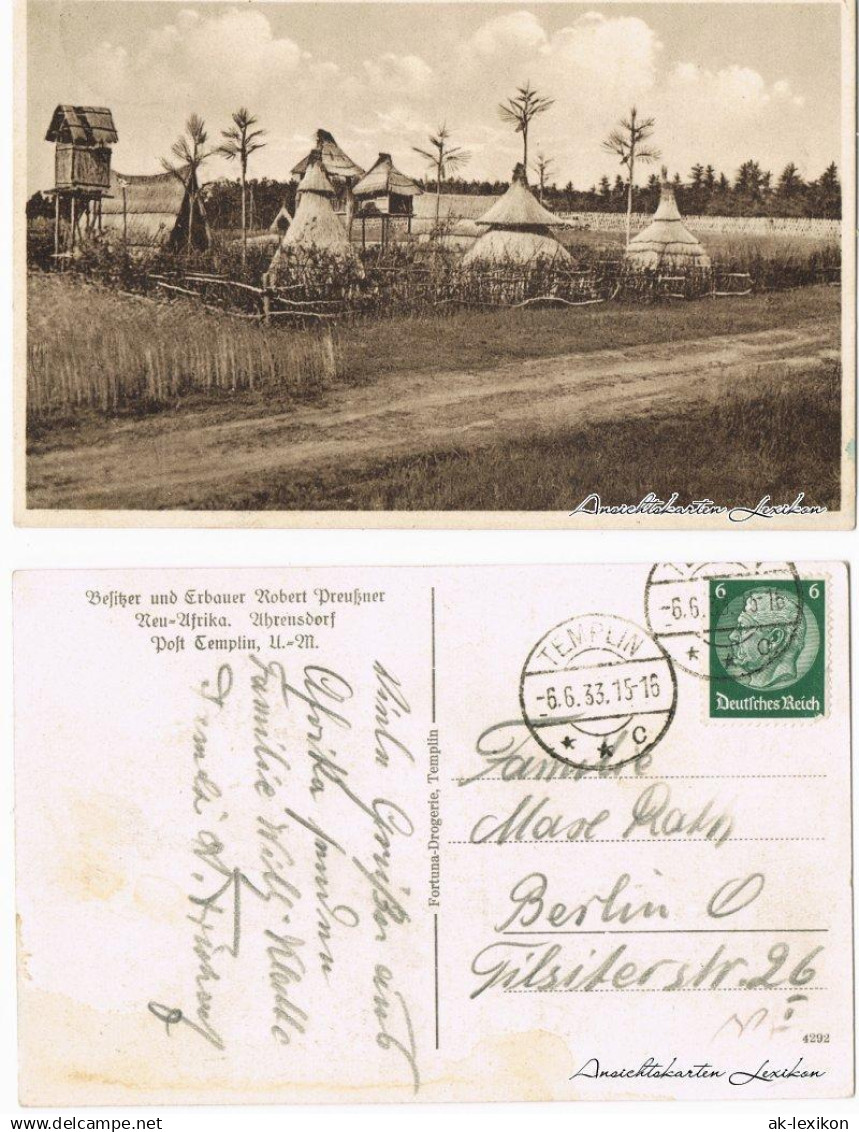 Ansichtskarten Lexikon
Besitzer und Erbauer Robert Preußner
Neu-Afrika. Ahrensdorf
Post Templin, U.-M.
Viele Grüße aus
Afrika senden
Familie
Fortuna-Drogerie, Templin
TEMPLIN
-6.6.33.15-16
* * c
-6.6. 15-16
* * c
6 6
Deutsches Reich
Familie
Max Rath
Berlin O
Tilsiterstr. 26
I
4292
Ansichtskarten Lexikon
ak-lexikon